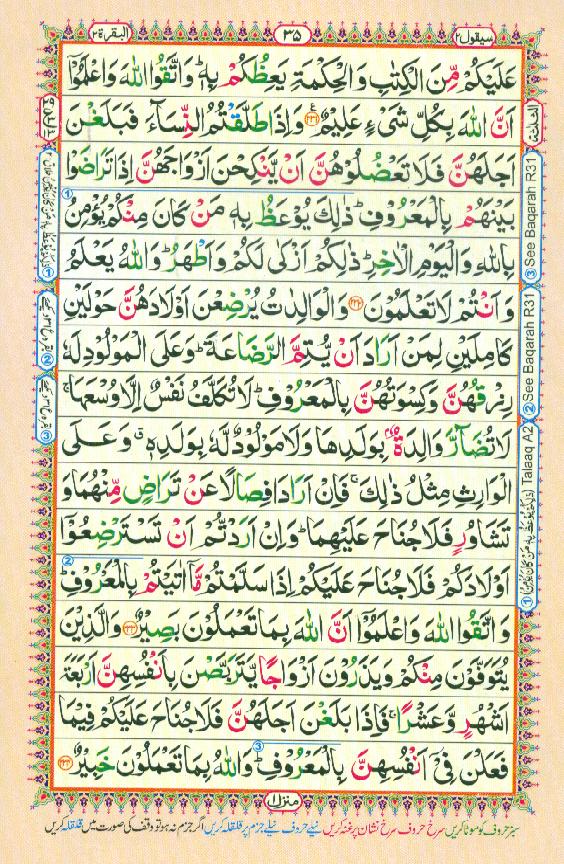 سیقول ۲
۳۵
البقرة ۲
عَلَيْكُمْ مِّنَ الْكِتٰبِ وَالْحِكْمَةِ يَعِظُكُمْ بِهٖ ؕ وَاتَّقُوا اللّٰهَ وَاعْلَمُوْۤا
اَنَّ اللّٰهَ بِكُلِّ شَیْءٍ عَلِيْمٌ ﴿۲۳۱﴾ وَاِذَا طَلَّقْتُمُ النِّسَآءَ فَبَلَغْنَ
اَجَلَهُنَّ فَلَا تَعْضُلُوْهُنَّ اَنْ يَّنْكِحْنَ اَزْوَاجَهُنَّ اِذَا تَرَاضَوْا
بَيْنَهُمْ بِالْمَعْرُوْفِ ؕ ذٰلِكَ يُوْعَظُ بِهٖ مَنْ كَانَ مِنْكُمْ يُؤْمِنُ
بِاللّٰهِ وَالْيَوْمِ الْاٰخِرِ ؕ ذٰلِكُمْ اَزْكٰى لَكُمْ وَاَطْهَرُ ؕ وَاللّٰهُ يَعْلَمُ
وَاَنْتُمْ لَا تَعْلَمُوْنَ ﴿۲۳۲﴾ وَالْوَالِدٰتُ يُرْضِعْنَ اَوْلَادَهُنَّ حَوْلَيْنِ
كَامِلَيْنِ لِمَنْ اَرَادَ اَنْ يُّتِمَّ الرَّضَاعَةَ ؕ وَعَلَى الْمَوْلُوْدِ لَهٗ
رِزْقُهُنَّ وَكِسْوَتُهُنَّ بِالْمَعْرُوْفِ ؕ لَا تُكَلَّفُ نَفْسٌ اِلَّا وُسْعَهَا ۚ
لَا تُضَآرَّ وَالِدَةٌۢ بِوَلَدِهَا وَلَا مَوْلُوْدٌ لَّهٗ بِوَلَدِهٖ ۗ وَعَلَى
الْوَارِثِ مِثْلُ ذٰلِكَ ۚ فَاِنْ اَرَادَا فِصَالًا عَنْ تَرَاضٍ مِّنْهُمَا وَ
تَشَاوُرٍ فَلَا جُنَاحَ عَلَيْهِمَا ؕ وَاِنْ اَرَدْتُّمْ اَنْ تَسْتَرْضِعُوْۤا
اَوْلَادَكُمْ فَلَا جُنَاحَ عَلَيْكُمْ اِذَا سَلَّمْتُمْ مَّاۤ اٰتَيْتُمْ بِالْمَعْرُوْفِ ؕ
وَاتَّقُوا اللّٰهَ وَاعْلَمُوْۤا اَنَّ اللّٰهَ بِمَا تَعْمَلُوْنَ بَصِيْرٌ ﴿۲۳۳﴾ وَالَّذِيْنَ
يُتَوَفَّوْنَ مِنْكُمْ وَيَذَرُوْنَ اَزْوَاجًا يَّتَرَبَّصْنَ بِاَنْفُسِهِنَّ اَرْبَعَةَ
اَشْهُرٍ وَّعَشْرًا ۚ فَاِذَا بَلَغْنَ اَجَلَهُنَّ فَلَا جُنَاحَ عَلَيْكُمْ فِيْمَا
فَعَلْنَ فِيْۤ اَنْفُسِهِنَّ بِالْمَعْرُوْفِ ؕ وَاللّٰهُ بِمَا تَعْمَلُوْنَ خَبِيْرٌ ﴿۲۳۴﴾
③ See Baqarah R31
② See Baqarah R31
① Talaaq A2
منزل ۱
سبز حروف کو موٹا کریں سرخ حروف سرخ نشان پر غنہ کریں نیلے حروف نیلے جزم پر قلقلہ کریں اگر جزم نہ ہو تو وقف کی صورت میں قلقلہ کریں